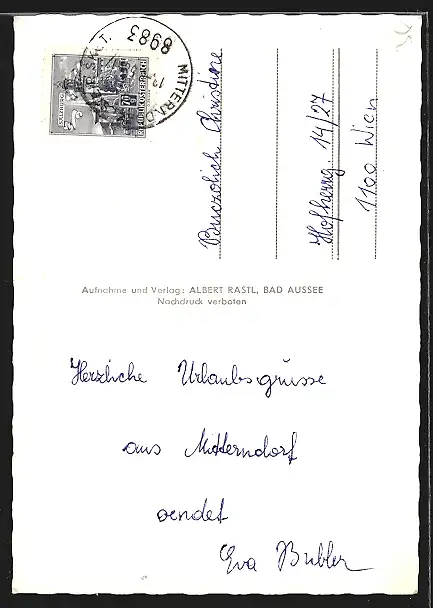 8983
MITTERNDO
SALZBURG
REPUBLIK ÖSTERREICH
Christine
Hofherrg. 14/27
1100 Wien
Aufnahme und Verlag: ALBERT RASTL, BAD AUSSEE
Nachdruck verboten
Herzliche Urlaubsgrüsse
aus Mitterndorf
sendet
Eva Bubler